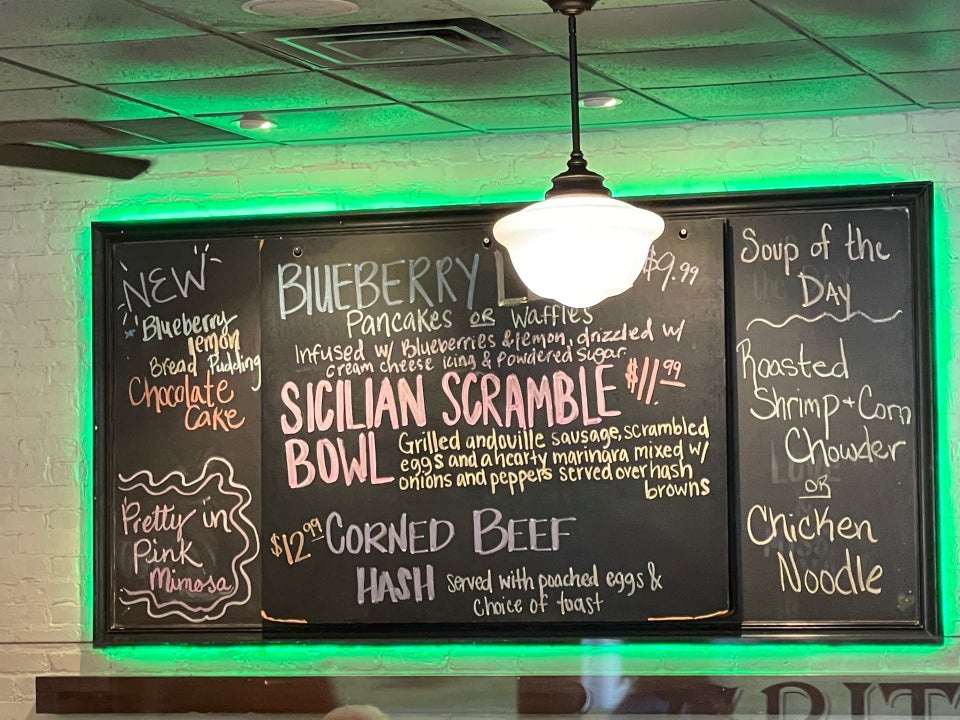 NEW
Blueberry
lemon
Bread Pudding
Chocolate
Cake
Pretty in
Pink
Mimosa
BLUEBERRY
$9.99
Pancakes OR Waffles
Infused w/ Blueberries & lemon, drizzled w/
cream cheese icing & powdered sugar
SICILIAN SCRAMBLE $11.99
BOWL
Grilled andoville sausage, scrambled
eggs and a hearty marinara mixed w/
onions and peppers served over hash
browns
$12.99 CORNED BEEF
HASH served with poached eggs &
choice of toast
Soup of the
Day
Roasted
Shrimp + Corn
Chowder
OR
Chicken
Noodle